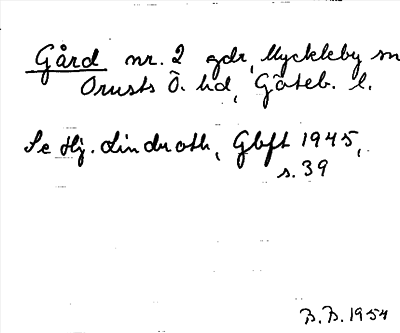 Gård nr. 2 gdr, Myckleby sn
Orusts Ö. hd, Göteb. l.
Se Hj. Lindroth, Gbft 1945,
s. 39
B.B. 1954